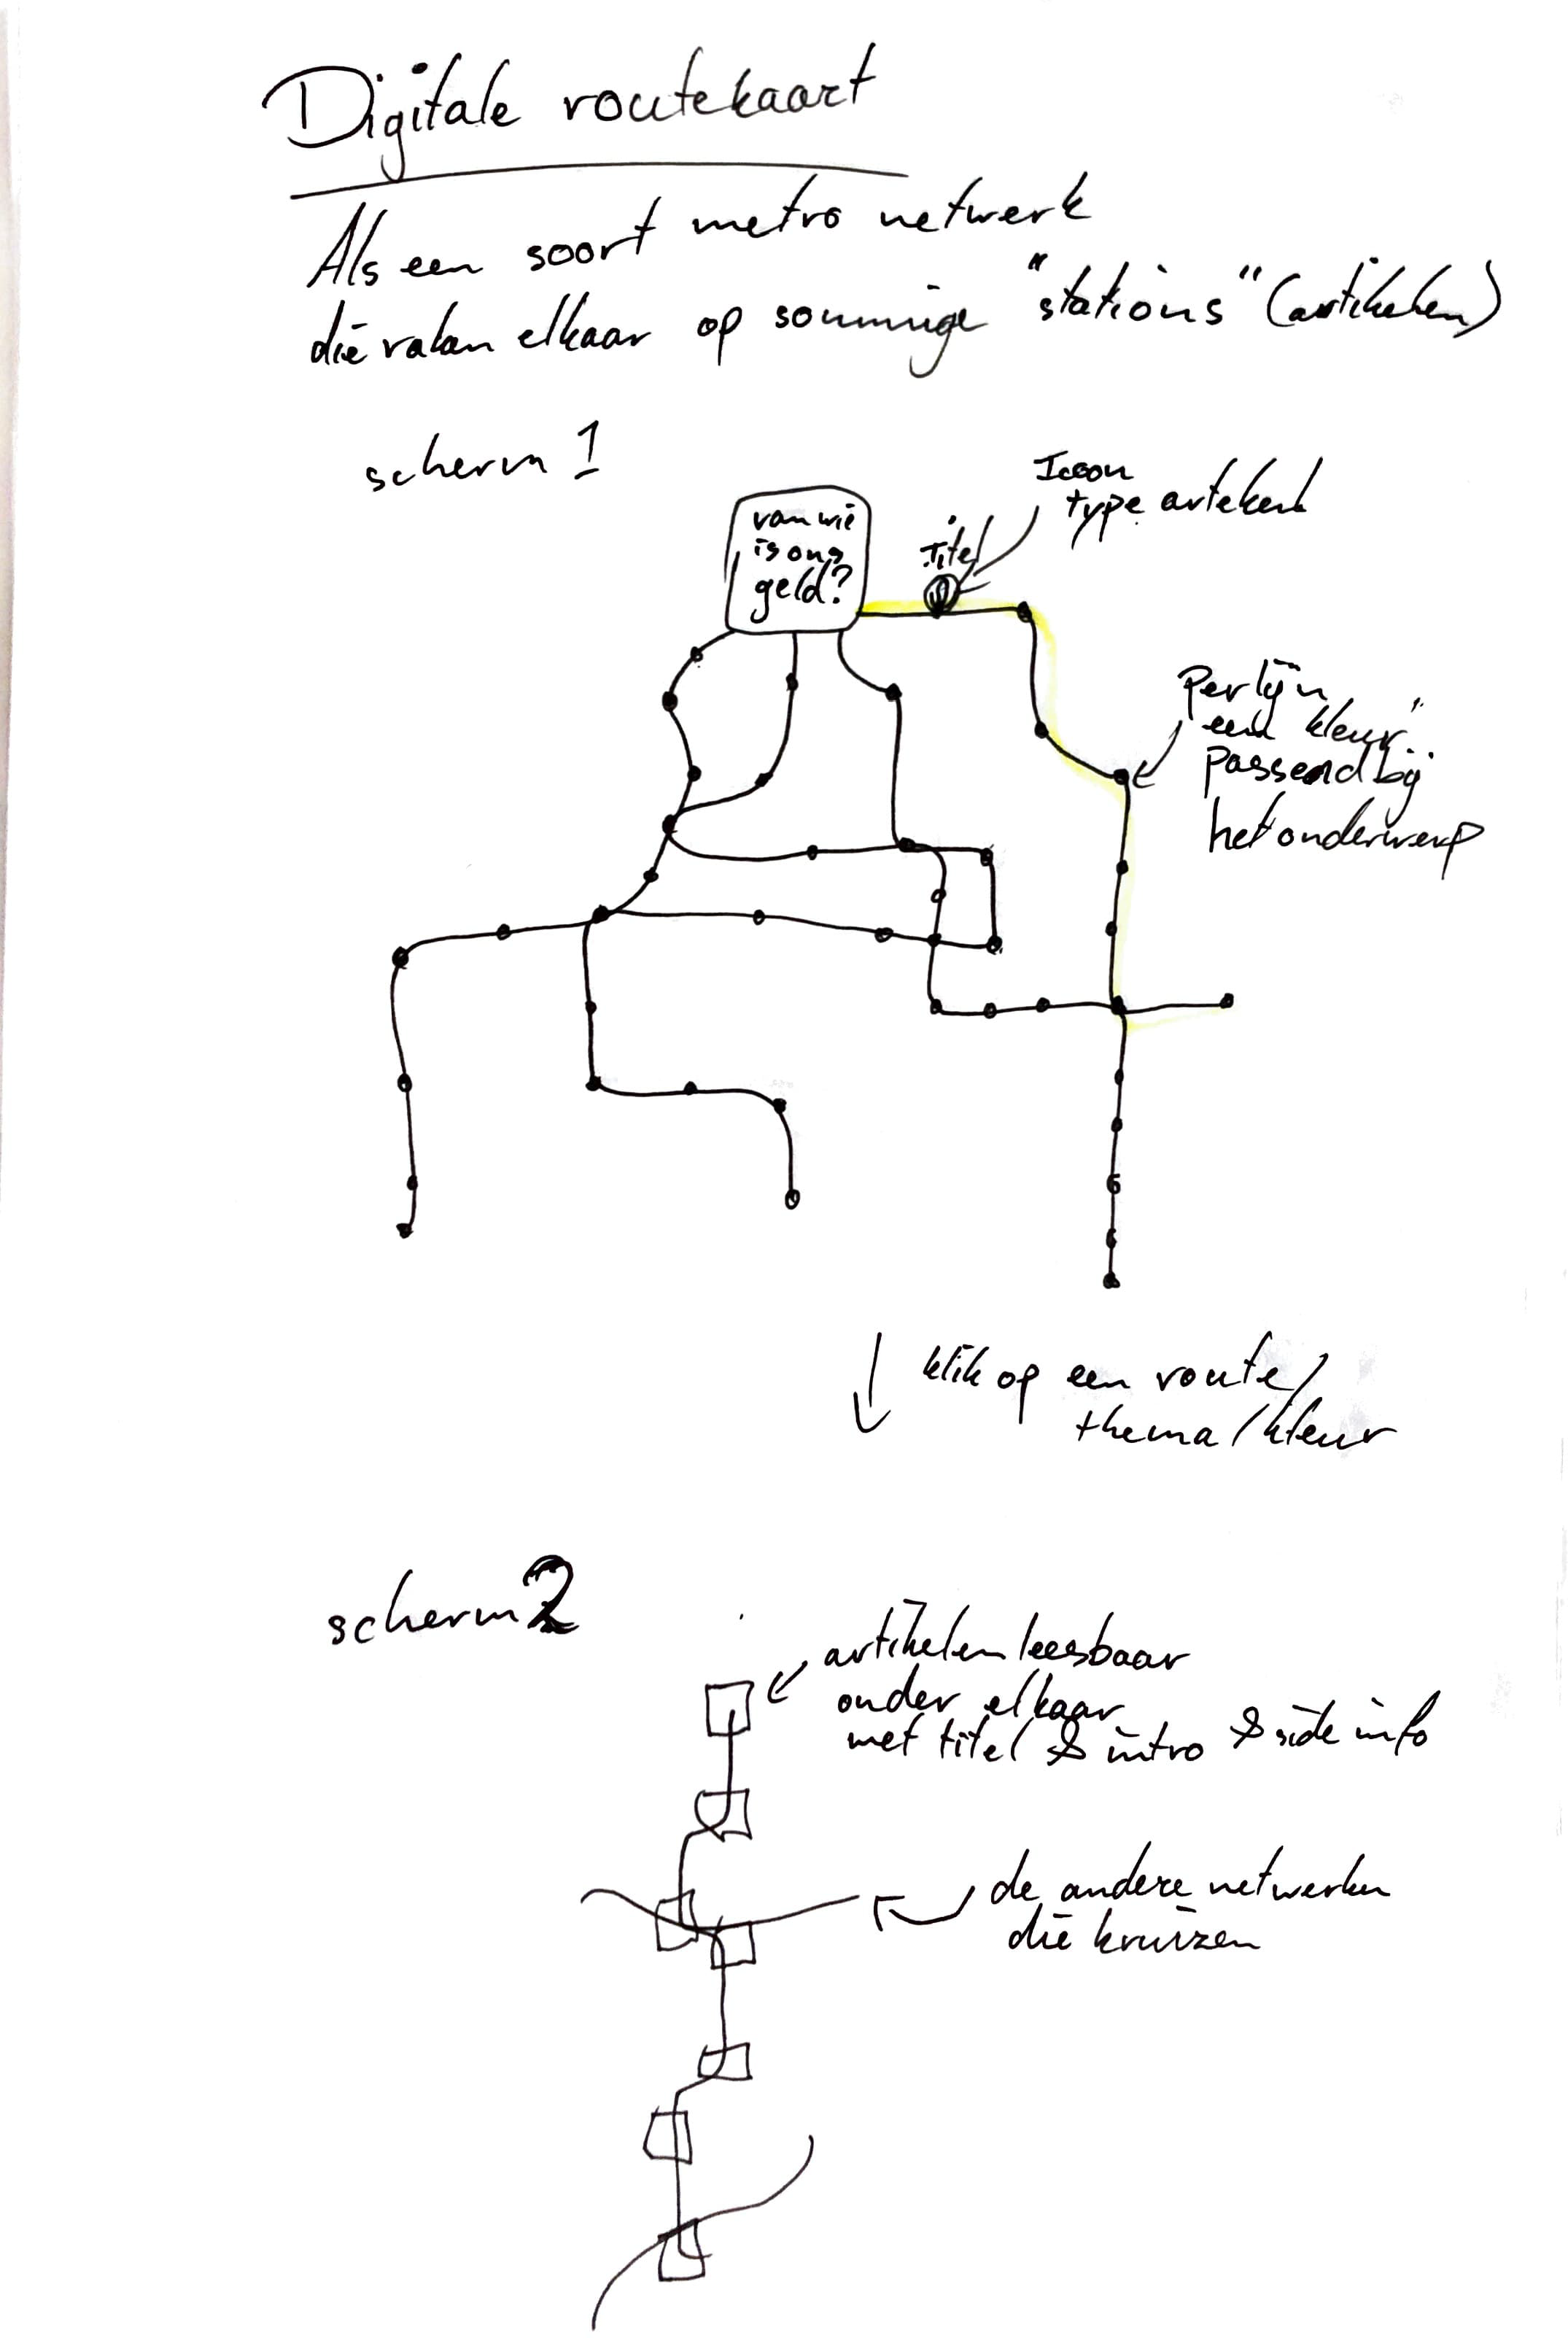 Digitale routekaart
Als een soort metro netwerk
die raken elkaar op sommige "stations" (artikelen)
scherm 1
Icoon
type artekenl
Titel
van wie
is ons
geld?
Per lijn
een "kleur"
passend bij
het onderwerp
klik op een route/
thema/kleur
scherm 2
artikelen leesbaar
onder elkaar
met titel & intro & side info
de andere netwerken
die kruizen